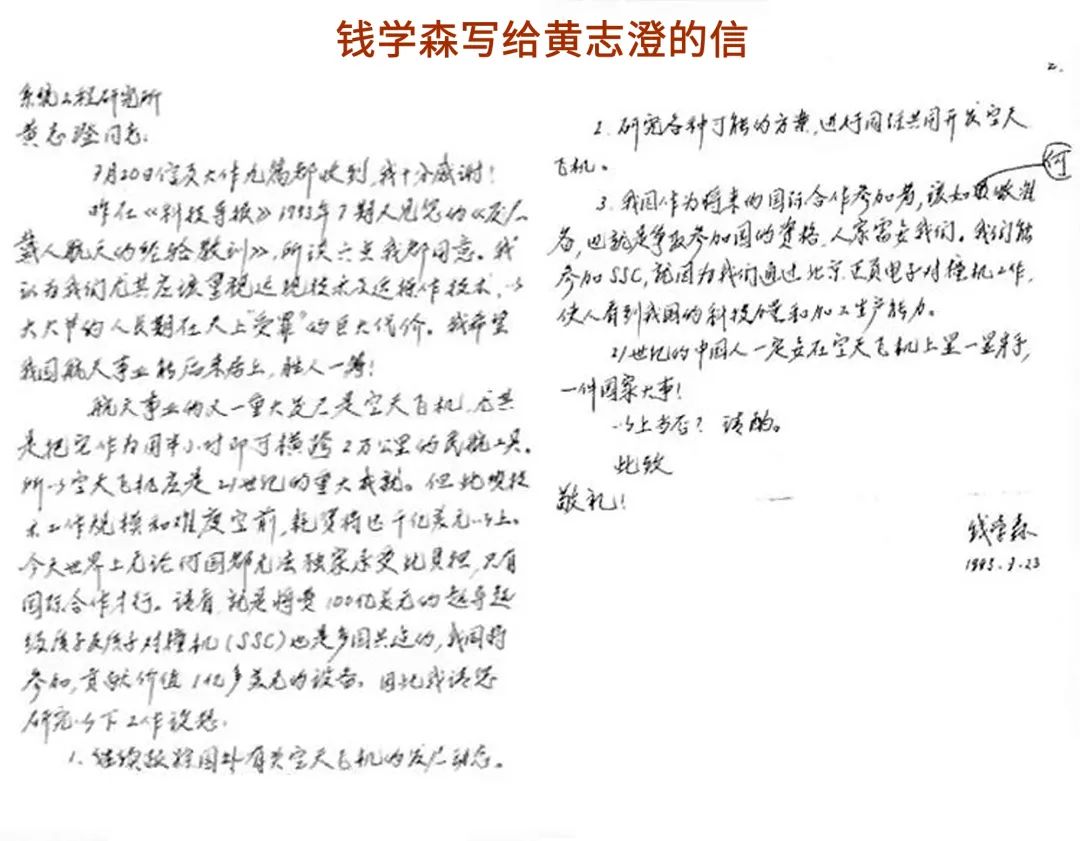 钱学森写给黄志澄的信
系统工程研究所
黄志澄同志:
7月20日信及大作九篇都收到,我十分感谢!
昨在《科技导报》1993年7期又见您的《发展
载人航天的经验教训》,所谈六点我都同意。我
认为我们尤其应该重视遥现技术及遥操作技术,以
大大节约人长期在天上“受罪”的巨大代价。我希望
我国航天事业能后来居上,胜人一筹!
航天事业的又一重大发展是空天飞机,尤其
是把它作为用半小时即可横跨2万公里的民航工具。
所以空天飞机应是21世纪的重大成就。但此项技
术工作规模和难度空前,耗资将达千亿美元以上。
今天世界上无论何国都无法独家承受此负担,只有
国际合作才行。请看,就是将费100亿美元的超导超
级质子反质子对撞机(SSC)也是多国共建的,我国将
参加,贡献价值1亿多美元的设备。因此我请您
研究以下工作设想:
1. 继续报辑国外有关空天飞机的发展动态。
2.
2. 研究各种可能的方案,进行国经共同开发空天
飞机。
何
3. 我国作为将来的国际合作参加者,该如
备,也就是争取参加国的资格,人家需要我们。我们能
参加SSC,就因为我们通过北京正负电子对撞机工作,
使人看到我国的科技能量和加工生产能力。
21世纪的中国人一定要在空天飞机上显一显身手,
一件国家大事!
以上当否?请酌。
此致
敬礼!
钱学森
1993.7.23